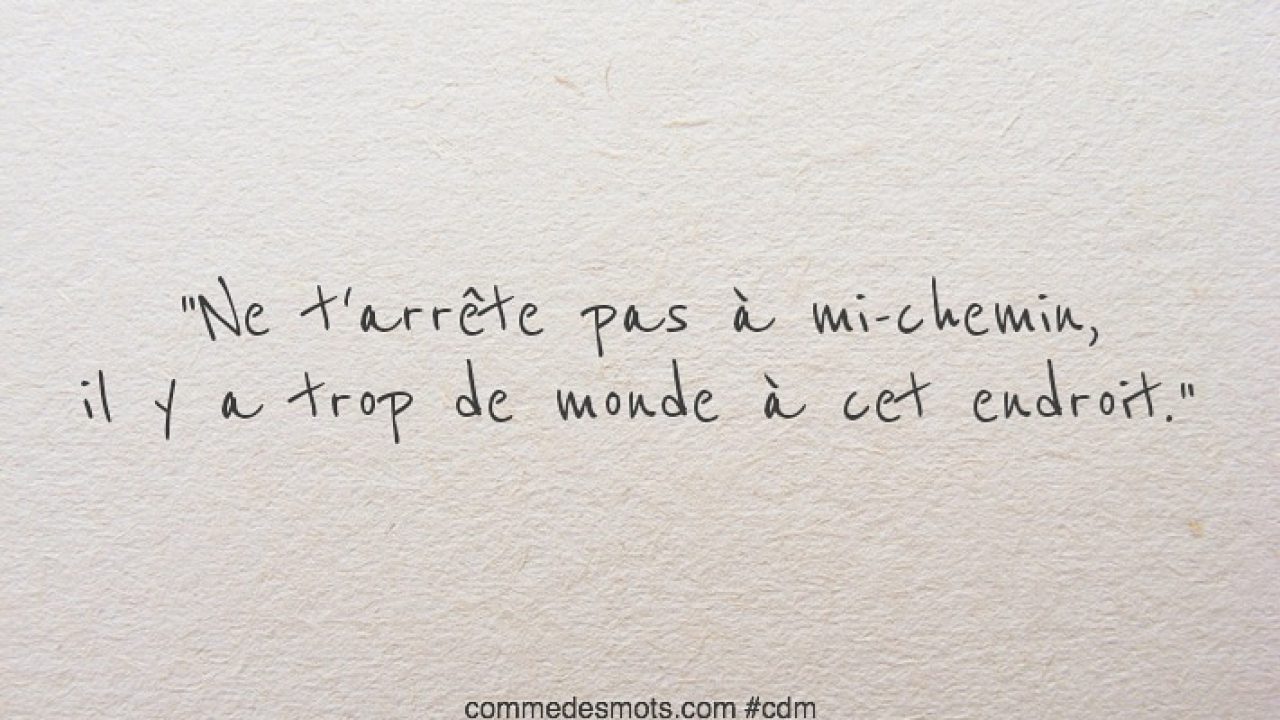 "Ne t'arrête pas à mi-chemin,
il y a trop de monde à cet endroit."
commedesmots.com #cdm